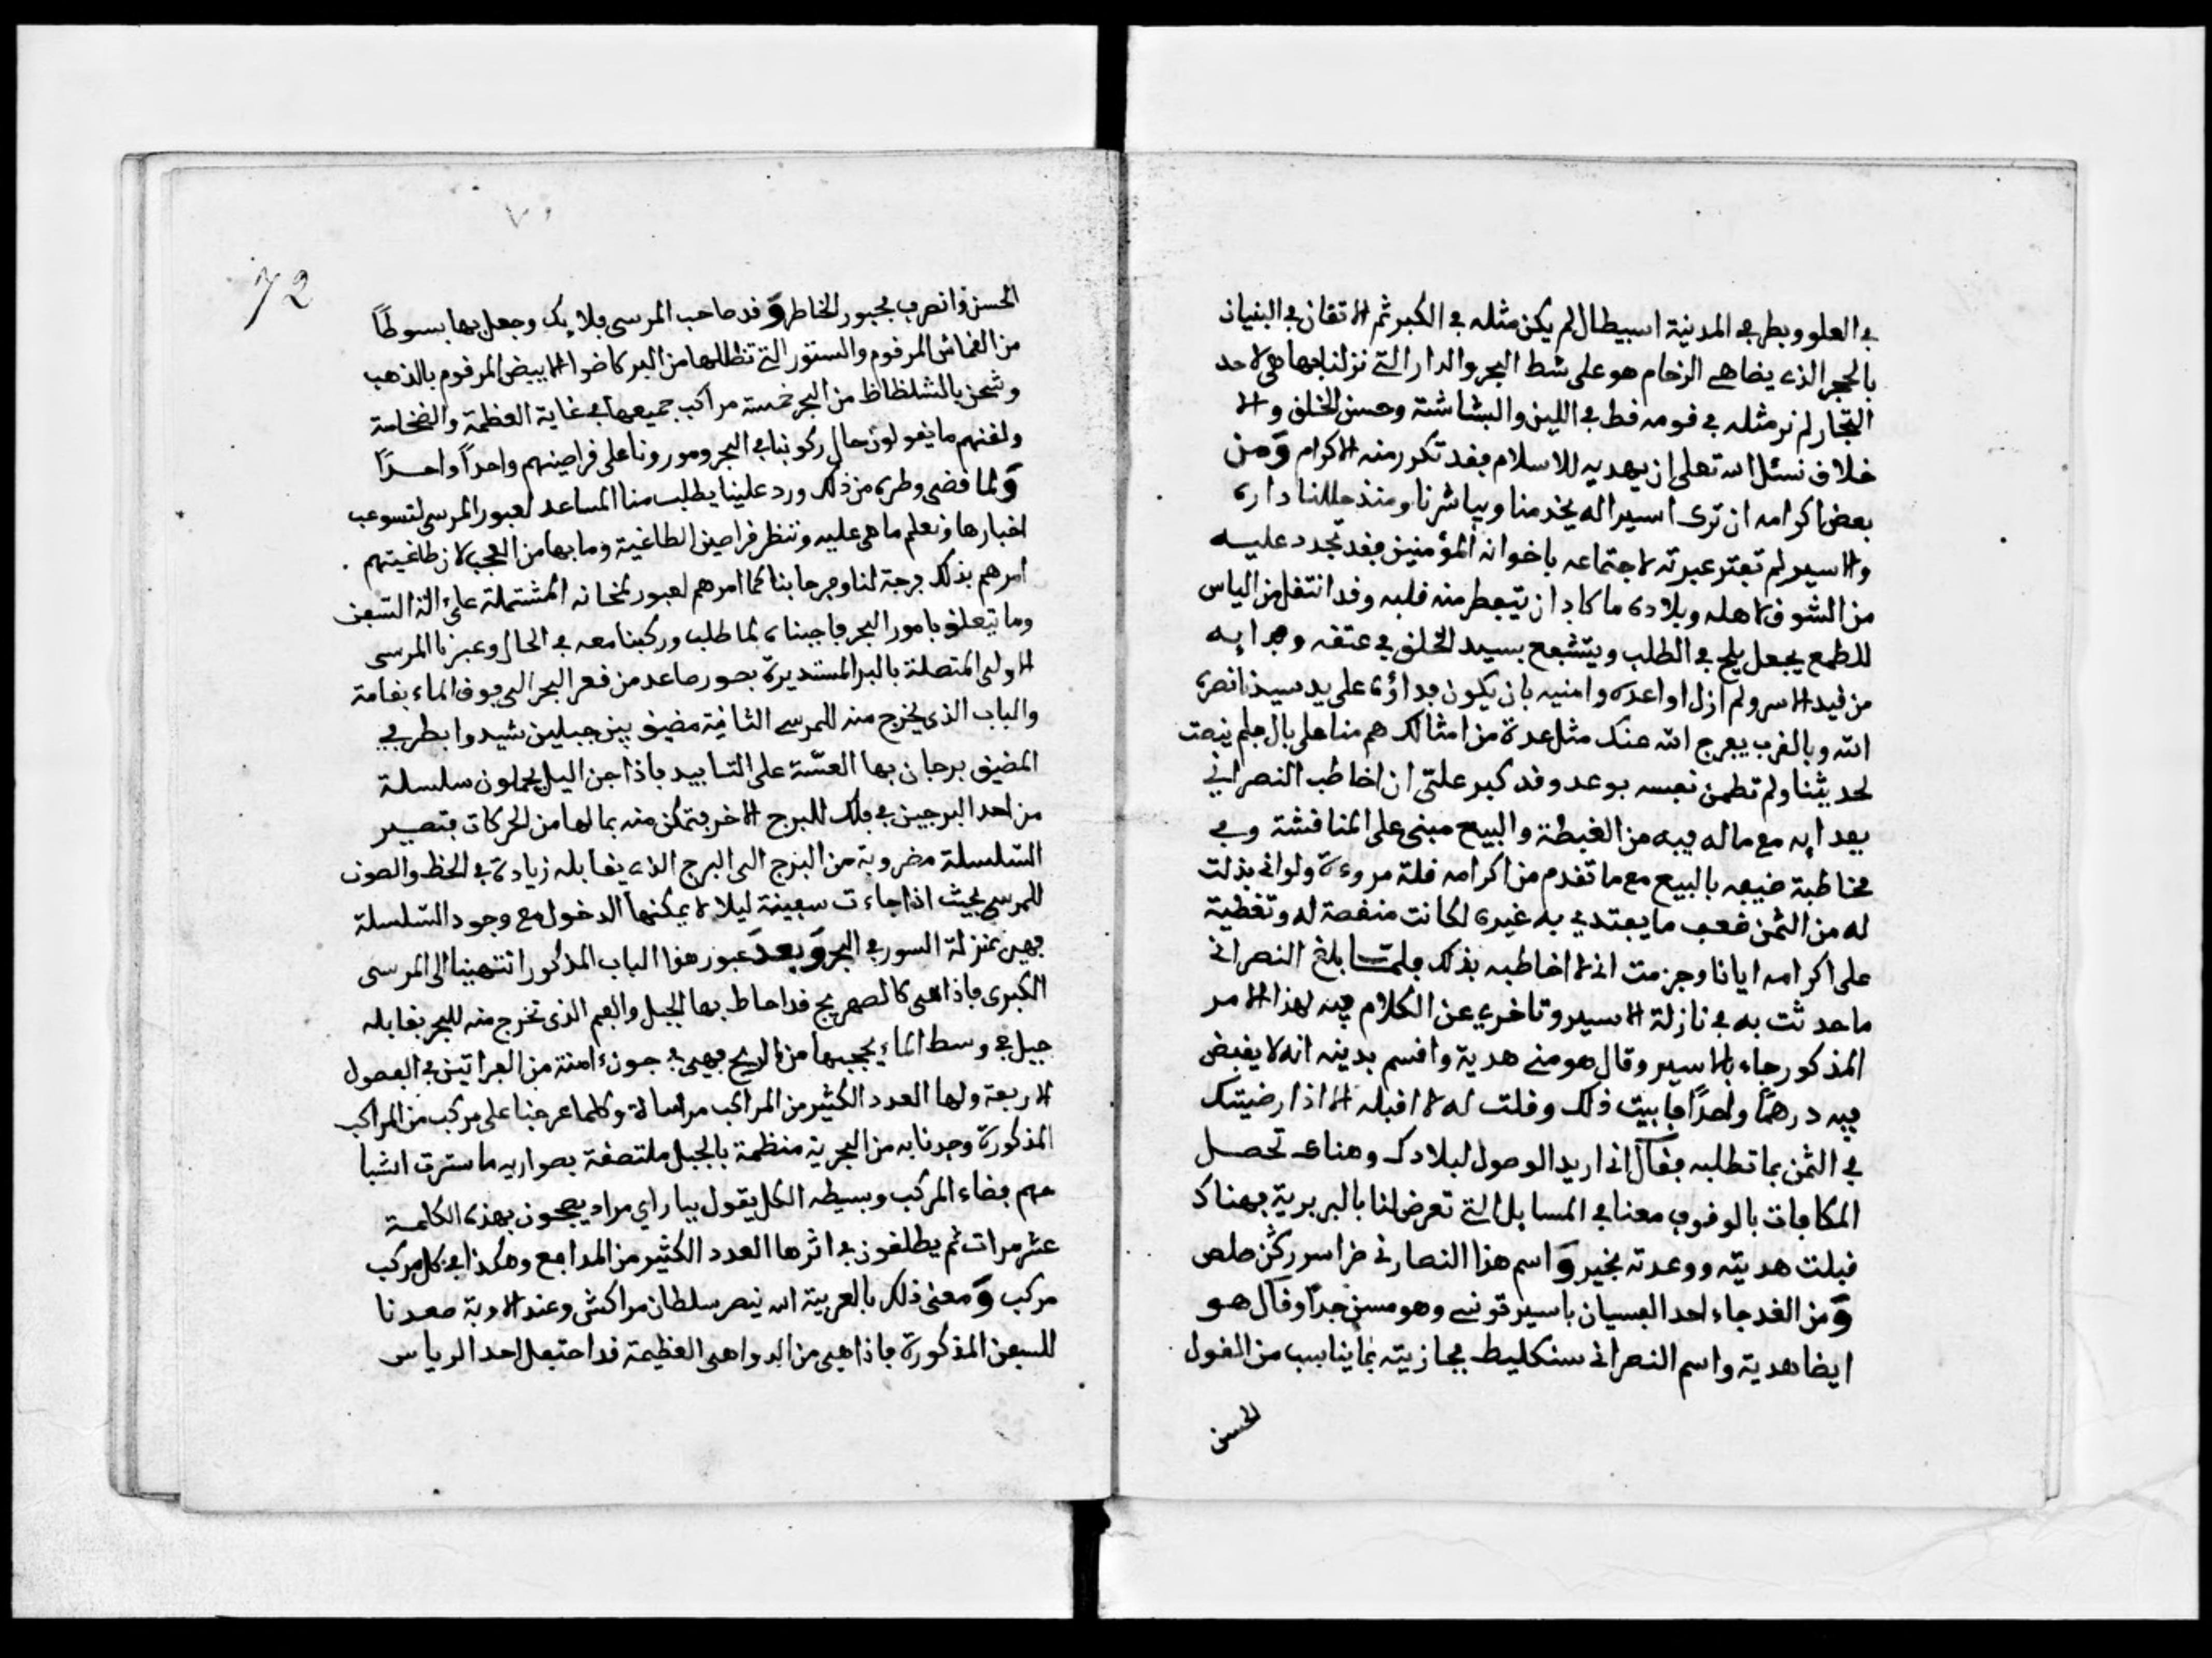 في العلو وبطرفي المدينة اسبيطال لم يكن مثله في الكبر ثم الاتقان في البنيان
بالحجر الذي يضاهي الرخام هو على شط البحر والدار التي نزلنا بها هي لاحد
التجار لم نر مثله في قومه قط في اللين والبشاشة وحسن الخلق والا
خلاق نسئل الله تعلى ان يهديه للاسلام فقد تكرر منه الاكرام ومن
بعض اكرامه ان ترى اسيرا له يخدمنا ويباشرنا ومنذ حللنا داره
والاسير لم تفتر عبرته لاجتماعه باخوانه المؤمنين فقد تجدد عليه
من الشوق لاهله وبلاده ما كاد ان يتفطر منه قلبه وقد انتقل من الياس
للطمع فجعل يلح في الطلب ويتشفع بسيد الخلق في عتقه وفدايه
من قيد الاسر ولم ازل اواعده وامنيه بان يكون فداؤه على يد سيدنا نصره
الله وبالقرب يفرج الله عنك مثل عدة من امثالك هم منا على بال فلم ينصت
لحديثنا ولم تطمئن نفسه بوعد وقد كبر علي ان اخاطب النصراني
بفدايه مع ما له فيه من الغبطة والبيع مبني على المنافشة وفي
مخاطبة ضيفه بالبيع مع ما تقدم من اكرامه قلة مروءة ولو اني بذلت
له من الثمن ضعف ما يفتدي به غيره لكانت منقصة له وتغطية
على اكرامه ايانا وجزمت اني لا اخاطبه بذلك فلمّا بلغ النصراني
ما حدثت به في نازلة الاسير وتاخري عن الكلام فيه لهذا الامر
المذكور جاء بالاسير وقال هو مني هدية واقسم بدينه انه لا يقبض
فيه درهمًا واحدًا فابيت ذلك وقلت له لا اقبله الا اذا رضيتك
في الثمن بما تطلبه فقال اني اريد الوصول لبلادك وهناك تحصل
المكافات بالوقوف معنا في المسايل التي تعرض لنا بالبربرية فهناك
قبلت هديته ووعدته بخير واسم هذا النصارني خراسوركثن صلص
ومن الغد جاء احد الفسيان باسير تونسي وهو مسن جدًا وقال هو
ايضا هدية واسم النصراني سنكليط فجازيته بما يناسب من القول
الحسن
70
72
الحسن وانصرف مجبور الخاطر وقد صاحب المرسى فلايك وجعل بها بسوطًا
من القماش المرقوم والستور التي تظللها من البركاضو الابيض المرقوم بالذهب
وشحن بالشلظاظ من البحر خمسة مراكب جميعها في غاية العظمة والضخامة
ولقنهم ما يقولون حال ركوبنا في البحر ومرورنا على قراصينهم واحدًا واحدًا
ولما قضى وطره من ذلك ورد علينا يطلب منا المساعد لعبور المرسى لتسوعب
اخبارها ونعلم ما هي عليه وننظر قراصين الطاغية وما بها من العجب لان طاغيتهم
امرهم بذلك فرجة لنا وفرحا بنا كما امرهم لعبور لمخانه المشتملة على الة السفن
وما يتعلق بامور البحر فاجبناه لما طلب وركبنا معه في الحال وعبرنا المرسى
الاولى المتصلة بالبر المستديرة بصور صاعد من قعر البحر الى فوق الماء بقامة
والباب الذي يخرج منه للمرسى الثانية مضيق بين جبلين شيدوا بطرفي
المضيق برجان بها العسّة على التابيد فاذا جن اليل يحملون سلسلة
من احد البرجين في فلك للبرج الاخر فتمكن منه بما لها من الحركات فتصير
السّلسلة مضروبة من البرج الى البرج الذي يقابله زيادة في الحظ والصون
للمرسى بحيث اذا جاءت سفينة ليلا لا يمكنها الدخول مع وجود السّلسلة
فهي بمنزلة السور في البحر وبعد عبور هذا الباب المذكور انتهينا الى المرسى
الكبرى فاذا هي كالصهريج قد احاط بها الجبل والفم الذي تخرج منه للبحر يقابله
جبل في وسط الماء يحجبها من الريح فهي في جون ءامنة من الفراتين في الفصول
الاربعة ولها العدد الكثير من المراكب مراساة وكلما عرجنا على مركب من المراكب
المذكورة وجدنا به من البحرية منظمة بالجبل ملتصقة بصواريه ما سترت اشبا
حهم فضاء المركب وبسيطه الكل يقول بيا راي مراد يصيحون بهذه الكلمة
عشر مرات ثم يطلقون في اثرها العدد الكثير من المدافع وهكذا في كل مركب
مركب ومعنى ذلك بالعربية الله ينصر سلطان مراكش وعند الاوبة صعدنا
للسفن المذكورة فاذا هي من الدواهي العظيمة قد احتفل احد الرياس